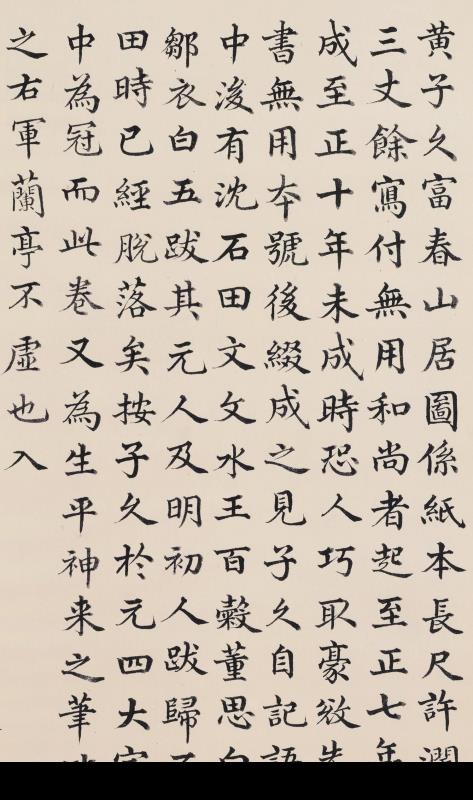 黄子久富春山居圖係紙本長尺許濶
三丈餘寫付無用和尚者起至正七年
成至正十年未成時恐人巧取豪效先
書無用夲號後綴成之見子久自記語
中後有沈石田文文水王百穀董思白
鄒衣白五跋其元人及明初人跋歸石
田時已經脫落矣按子久於元四大家
中為冠而此卷又為生平神来之筆
之右軍蘭亭不虛也入